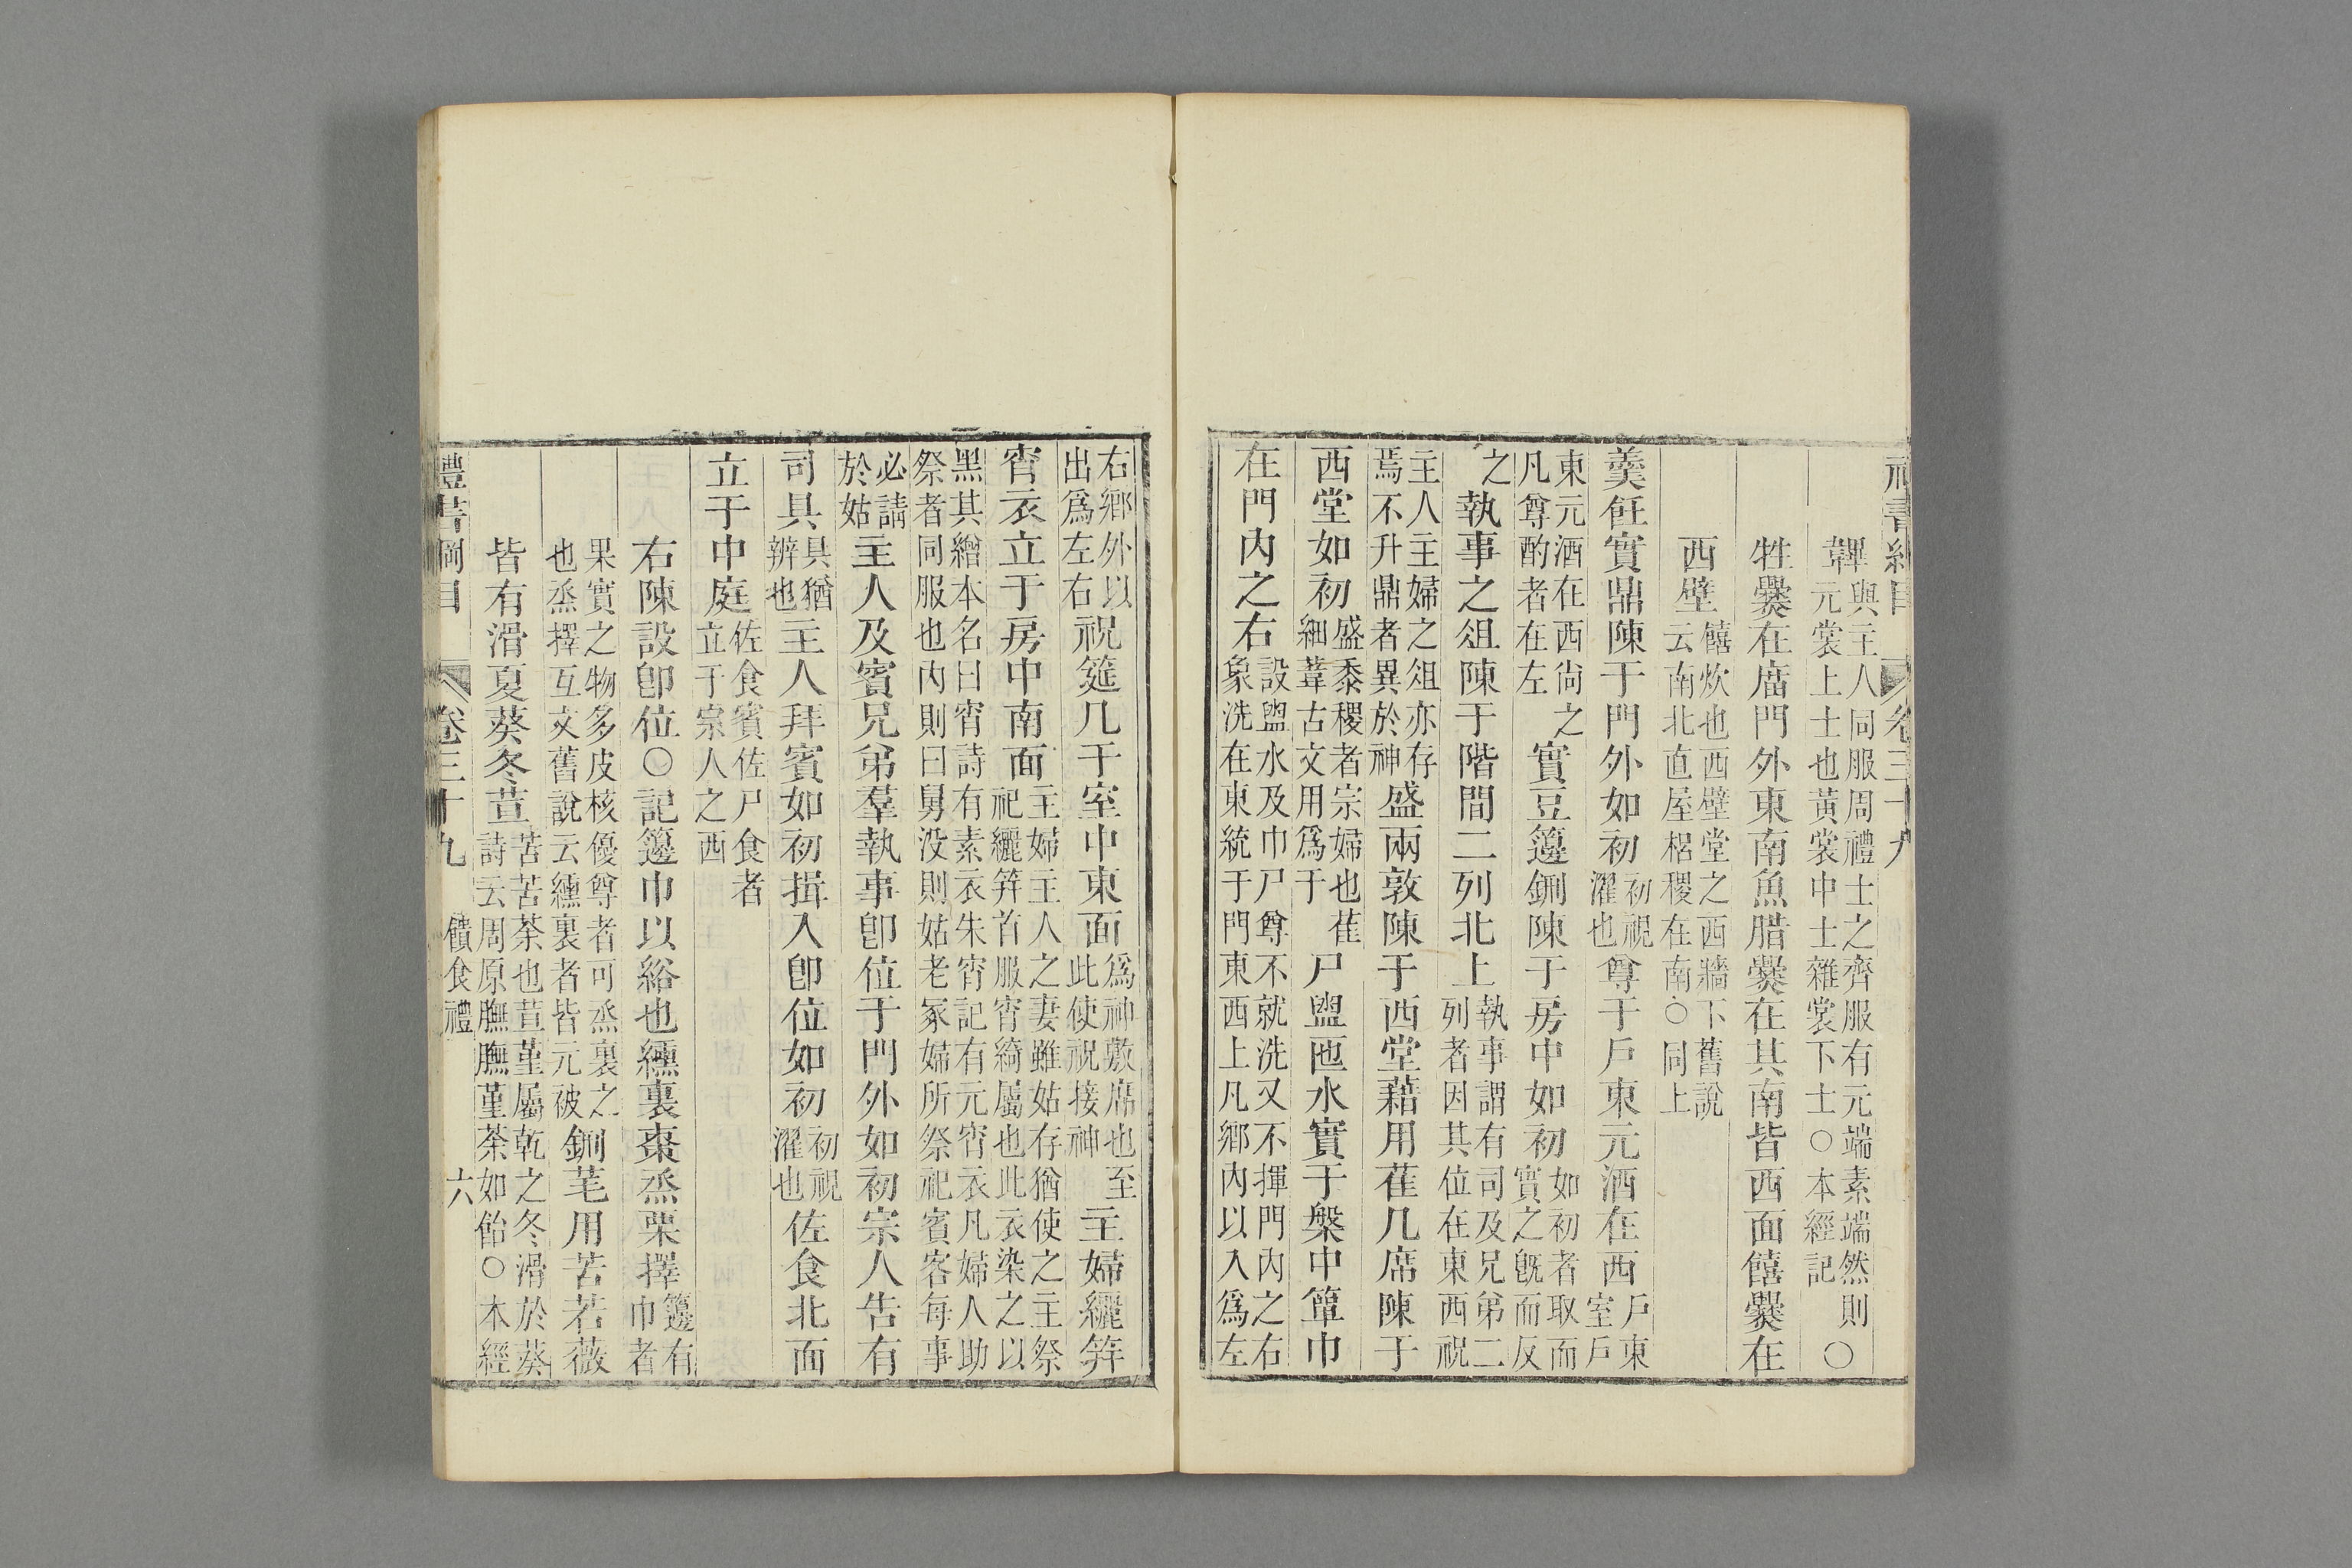 禮書綱目 卷三十九
韠與主人同服周禮士之齊服有元端素端然則元裳上士也黃裳中士雜裳下士○本經記○
牲爨在廟門外東南魚腊爨在其南皆西面饎爨在
西壁饎炊也西壁堂之西牆下舊說云南北直屋梠稷在南○同上
羹飪實鼎陳于門外如初初視濯也尊于戶東元酒在西戶東室戶
東元酒在西尚之凡尊酌者在左實豆籩鉶陳于房中如初如初者取而實之旣而反
之執事之俎陳于階間二列北上執事謂有司及兄弟二列者因其位在東西祝
主人主婦之俎亦存焉不升鼎者異於神盛兩敦陳于西堂藉用萑几席陳于
西堂如初盛黍稷者宗婦也萑細葦古文用爲于尸盥匜水實于槃中簞巾
在門內之右設盥水及巾尸尊不就洗又不揮門內之右象洗在東統于門東西上凡鄉內以入爲左
右鄉外以出爲左右祝筵几于室中東面爲神敷席也至此使祝接神主婦纚笄
宵衣立于房中南面主婦主人之妻雖姑存猶使之主祭祀纚笄首服宵綺屬也此衣染之以
黑其繒本名曰宵詩有素衣朱宵記有元宵衣凡婦人助祭者同服也內則曰舅没則姑老冢婦所祭祀賓客每事
必請於姑主人及賓兄弟羣執事卽位于門外如初宗人告有
司具具猶辨也主人拜賓如初揖入卽位如初初視濯也佐食北面
立于中庭佐食賓佐尸食者立于宗人之西
右陳設卽位○記籩巾以綌也纁裏棗烝栗擇籩有巾者
果實之物多皮核優尊者可烝裏之也烝擇互文舊說云纁裏者皆元被鉶芼用苦若薇
皆有滑夏葵冬荁苦苦荼也荁堇屬乾之冬滑於葵詩云周原膴膴堇荼如飴○本經
禮書綱目 卷三十九 饋食禮 六